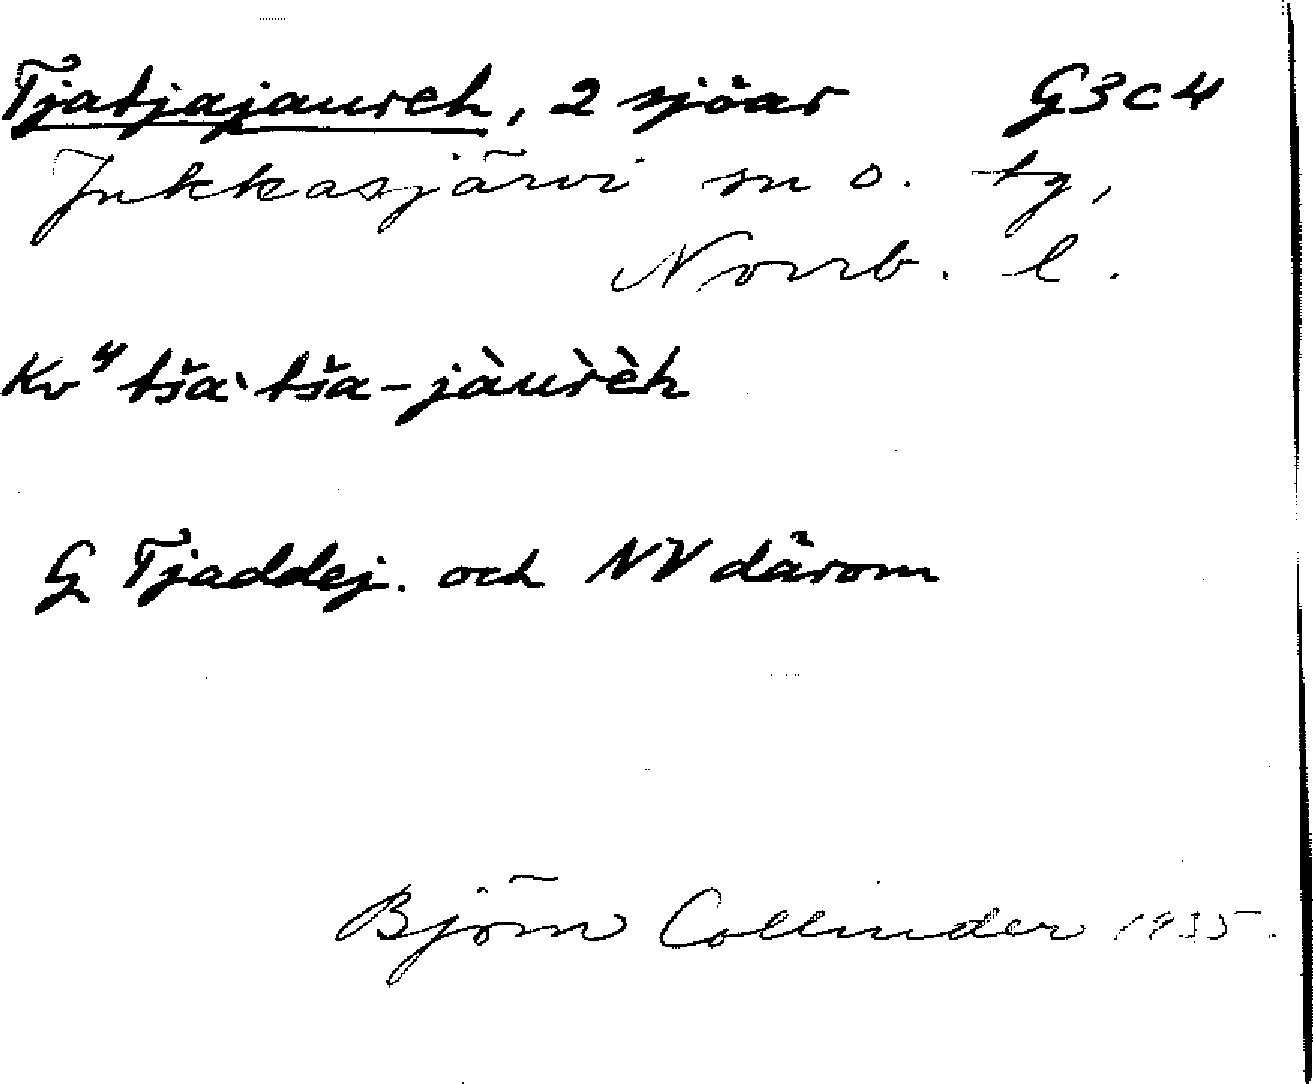 Tjatjajaureh, 2 sjöar G3c4
Jukkasjärvi sn o. tg,
Norrb. l.
Kv⁴ tšaˋtša-jàur̀èh
G Tjaddej. och NV därom
Björn Collinder 1935.